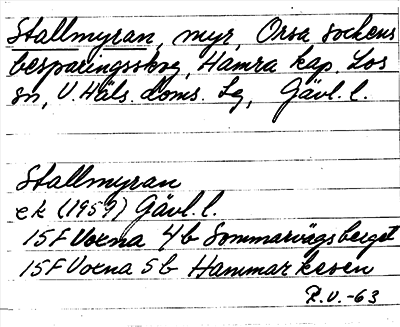 Stallmyran, myr, Orsa sockens
besparingsskog, Hamra kap. Los
sn, V. Häls. doms. Lg, Gävl. l.
Stallmyran
ek (1959) Gävl. l.
15F Voxna 4b Sommarvägsberget
15F Voxna 5b Hammarkoven
R.V.-63